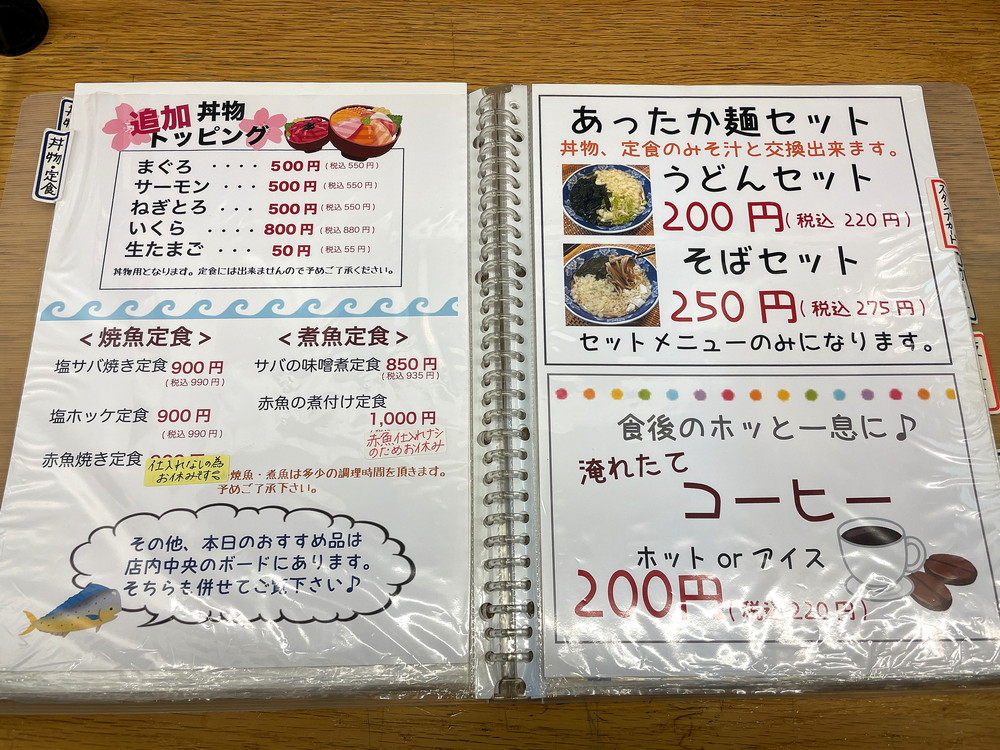 丼物・定食
追加 丼物
トッピング
まぐろ ････ 500円 (税込 550円)
サーモン ･･･ 500円 (税込 550円)
ねぎとろ ･･･ 500円 (税込 550円)
いくら ････ 800円 (税込 880円)
生たまご ･･･ 50円 (税込 55円)
丼物用となります。定食には出来ませんので予めご了承ください。
<焼魚定食>
塩サバ焼き定食 900円
(税込 990円)
塩ホッケ定食 900円
(税込 990円)
赤魚焼き定食
仕入れなしの為
お休みです
<煮魚定食>
サバの味噌煮定食 850円
(税込 935円)
赤魚の煮付け定食
1,000円
赤魚仕入れナシ
のためお休み
焼魚・煮魚は多少の調理時間を頂きます。
予めご了承下さい。
その他、本日のおすすめ品は
店内中央のボードにあります。
そちらも併せてご覧下さい♪
あったか麺セット
丼物、定食のみそ汁と交換出来ます。
うどんセット
200円(税込 220円)
そばセット
250円(税込 275円)
セットメニューのみになります。
食後のホッと一息に♪
淹れたて
コーヒー
ホット or アイス
200円(税込 220円)
スタンプカード